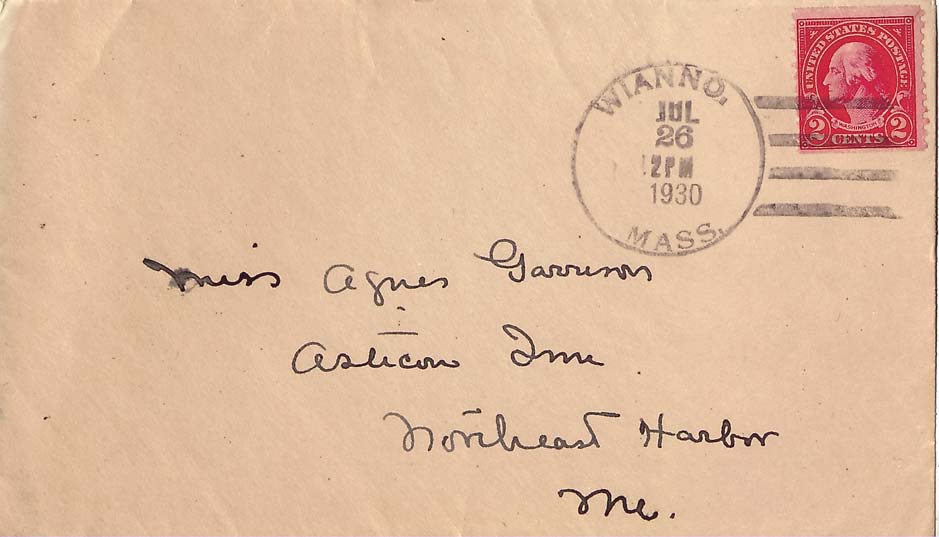 UNITED STATES POSTAGE
WASHINGTON
2 CENTS 2
WIANNO.
JUL
26
12PM
1930
MASS.
Miss Agnes Garrison
Asticou Inn
Northeast Harbor
Me.